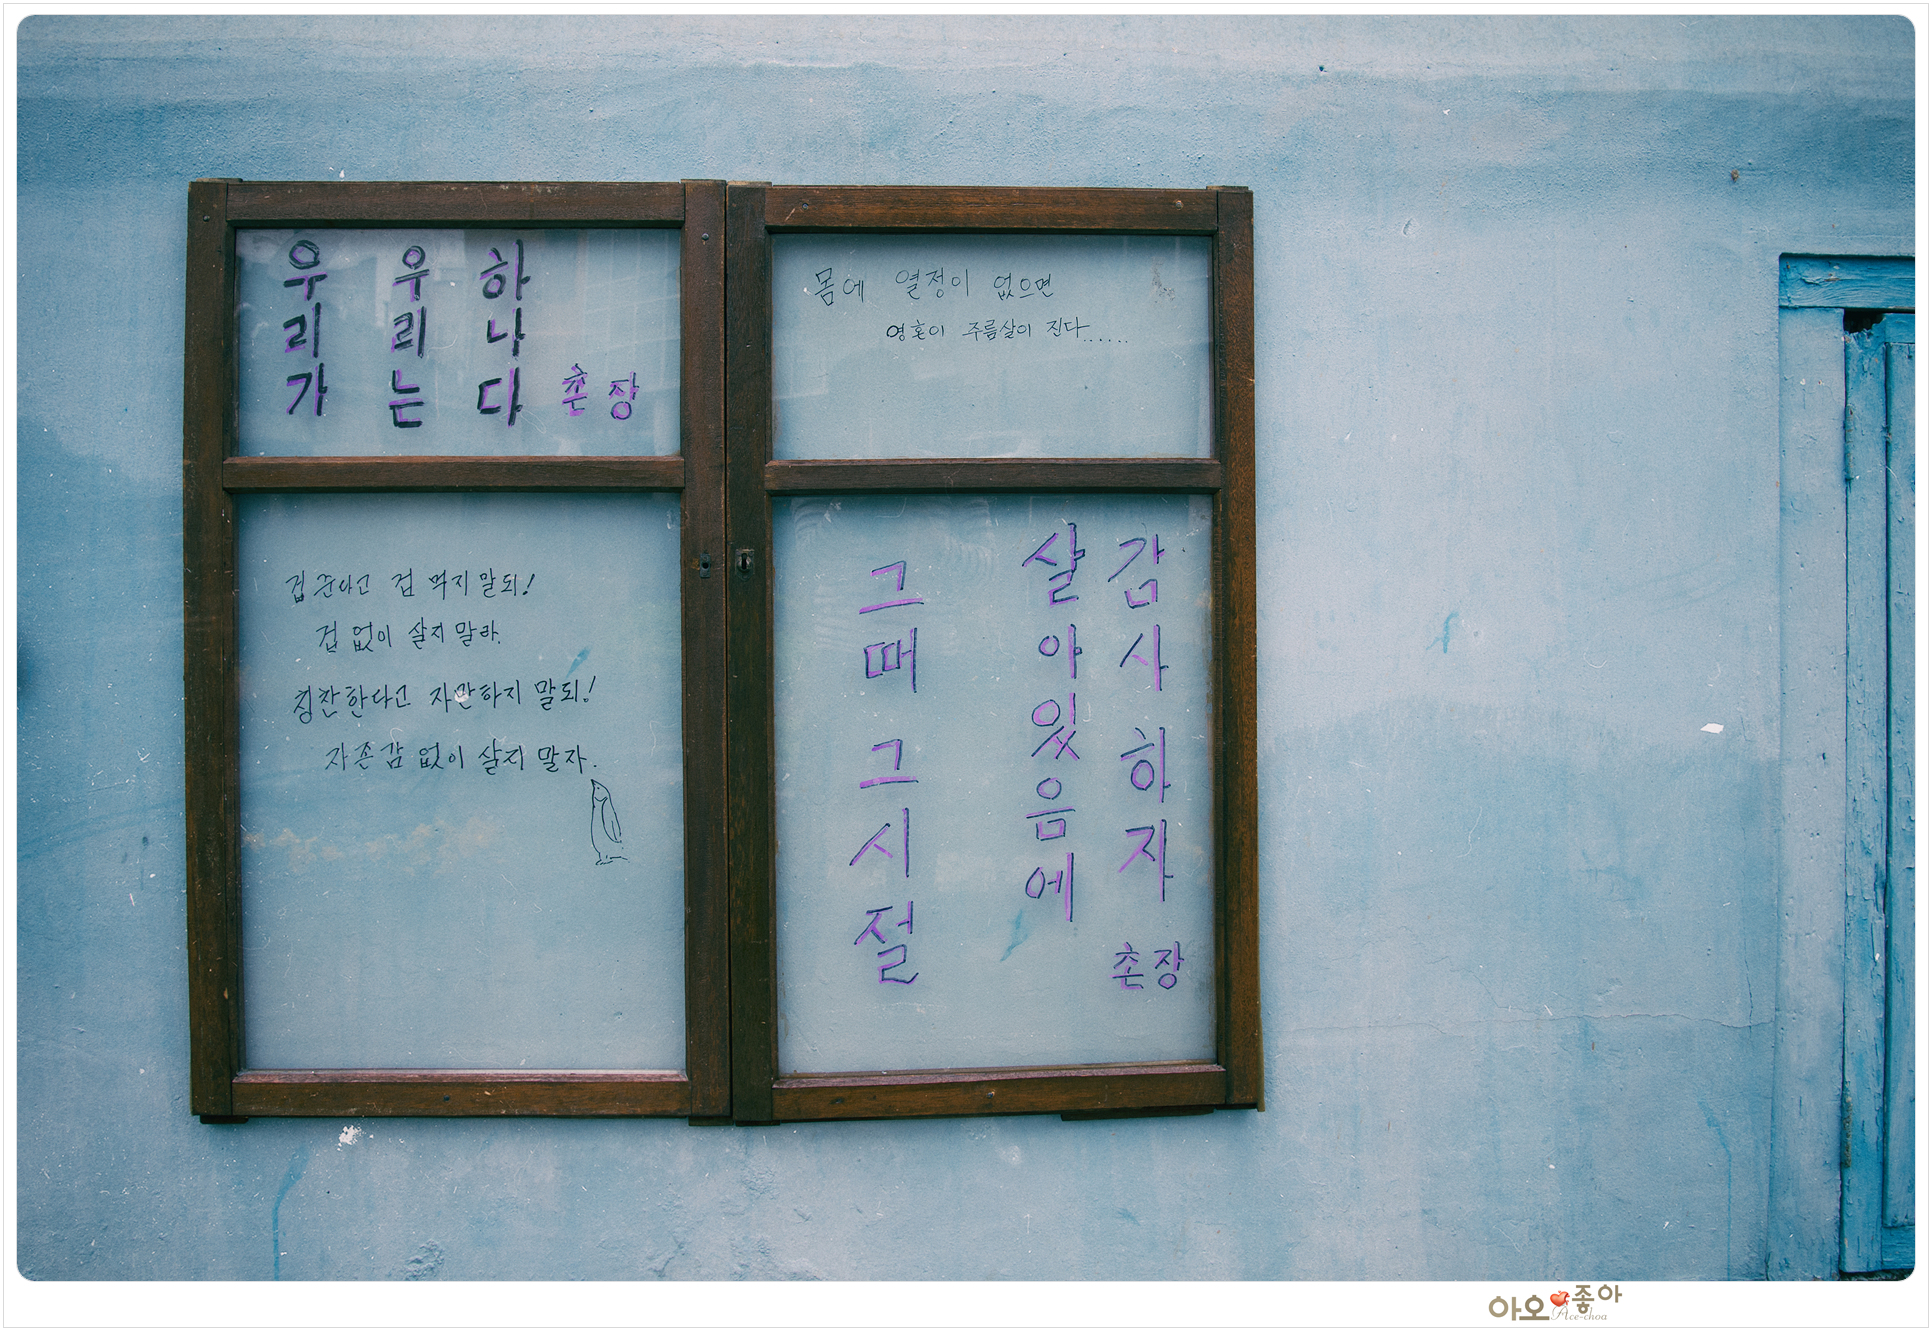 우리가
우리는
하나다
촌장
몸에 열정이 없으면
영혼이 주름살이 진다......
겁준다고 겁 먹지 말되!
겁 없이 살지 말라.
칭찬한다고 자만하지 말되!
자존감 없이 살지 말자.
그때 그시절
살아있음에
감사하자
촌장
아오좋아
Ace-choa